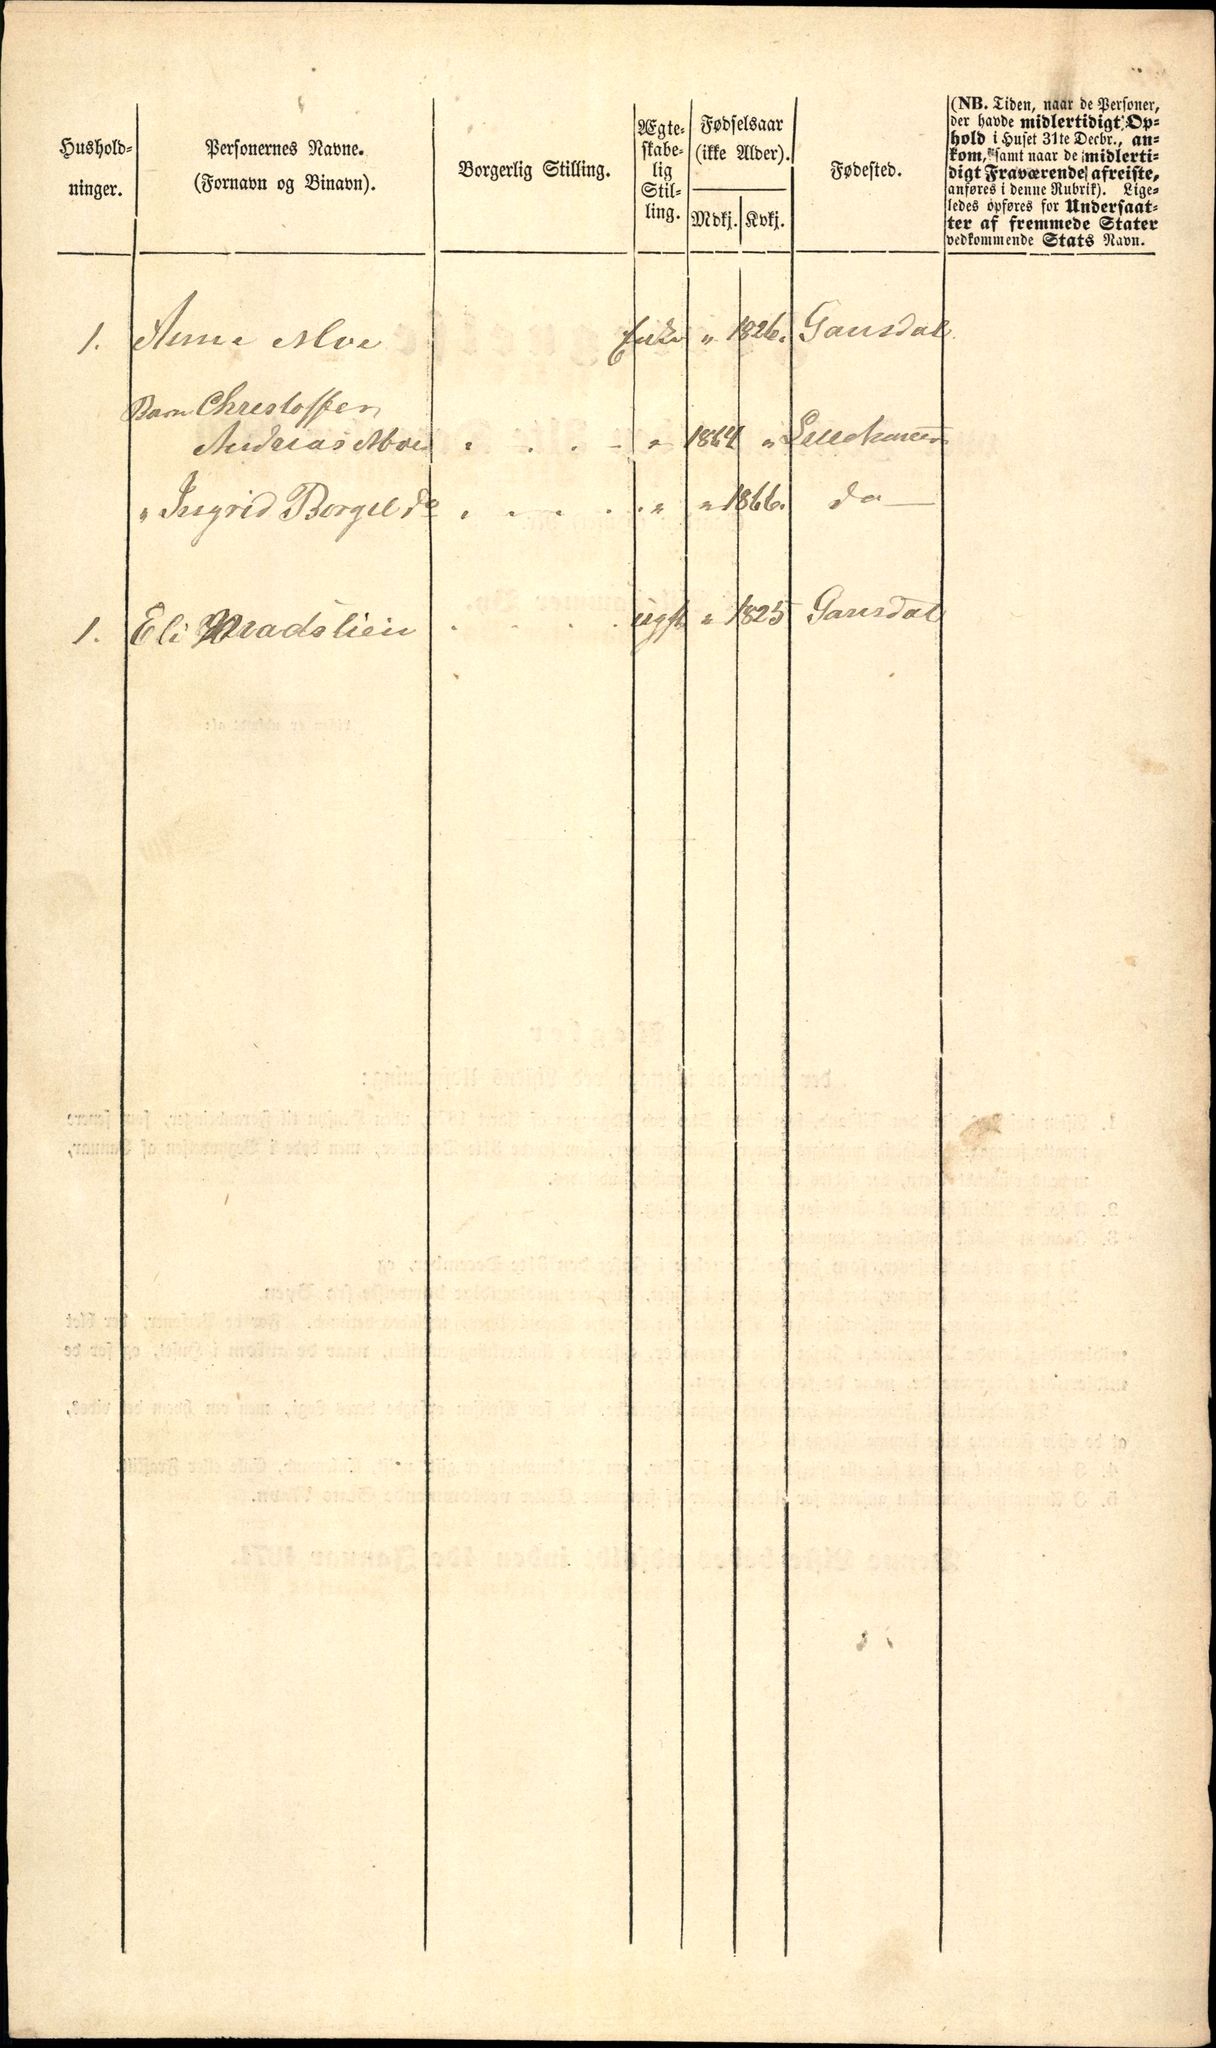 Hushold-
ninger.
Personernes Navne.
(Fornavn og Binavn).
Borgerlig Stilling.
Ægte-
skabe-
lig
Stil-
ling.
Fødselsaar
(ikke Alder).
Mdkj. Kvkj.
Fødested.
(NB. Tiden, naar de Personer,
der havde midlertidigt Op-
hold i Huset 31te Decbr., an-
kom, samt naar de midlerti-
digt Fraværende afreiste,
anføres i denne Rubrik). Lige-
ledes opføres for Undersaat-
ter af fremmede Stater
vedkommende Stats Navn.
1. Anne Moe Enke " 1826. Gausdal
Barn Christoffer
Andreas Moe " 1864 " Lillehammer
" Ingrid Borgilde " " 1866. do
1. Eli Madslien ugft " 1825 Gausdal